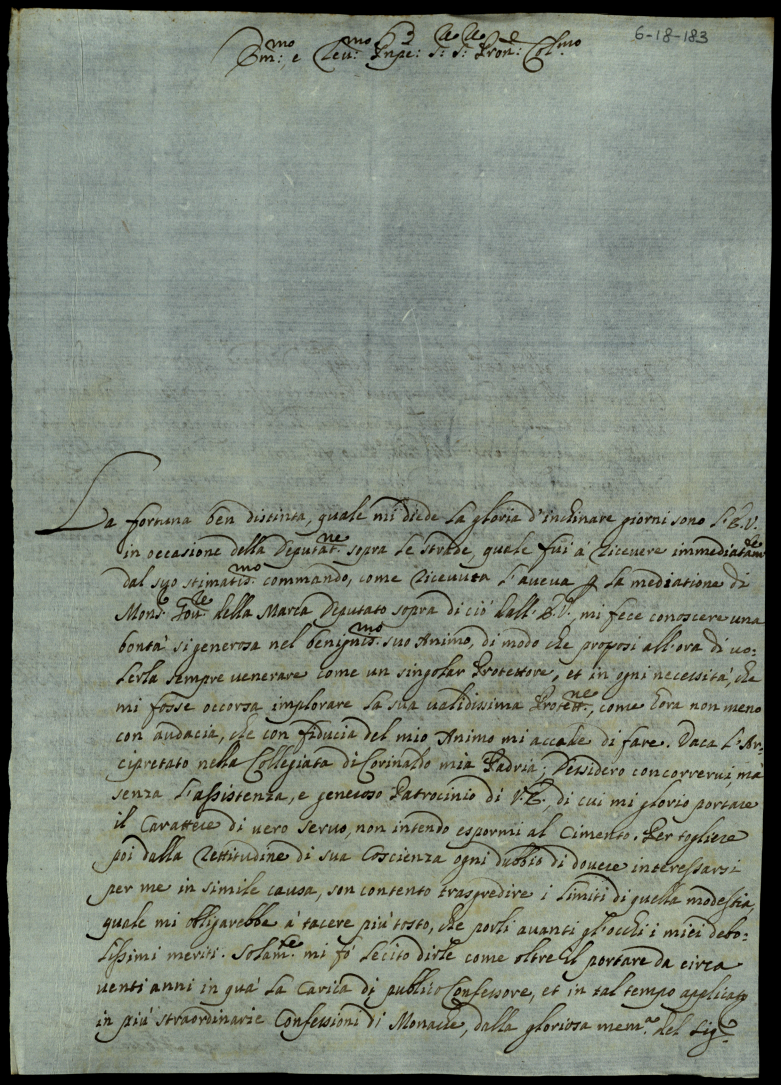 6-18-183
Em:mo e Rev:mo Pnpe: S: S: Pron:e Col:mo
La fortuna ben distinta, quale mi diede la gloria d'inchinare giorni sono l'E.V.
in occasione della Deputat:ne sopra le strade, quale fui á ricevere immediatam:te
dal suo stimatis:mo commando, come ricevuta l'aveva p la mediatione di
Mons:r Gov:re della Marca Deputato sopra di ció dall'E.V. mi fece conoscere una
bontá si generosa nel benignis:mo suo Animo, di modo che proposi all'ora di vo:
lerla sempre venerare come un singolar Protettore, et in ogni necessitá, che
mi fosse occorsa implorare la sua validissima Protett:ne, come hora non meno
con audacia, che con fiducia del mio Animo mi accade di fare. Vaca l'Ar:
cipretato nella Collegiata di Corinaldo mia Padria; Dessidero concorrervi, má
senza l'assistenza, e generoso Patrocinio di V.E., di cui mi glorio portare
il Carattere di vero servo, non intendo espormi al Cimento. Per togliere
poi dalla rettitudine di sua Coscienza ogni dubbio di dovere interessarsi
per me in simile causa, son contento trasgredire i limiti di quella modestia
quale mi obligarebbe á tacere piú tosto, che porli avanti gl'occhi i miei debo:
lissimi meriti. Solam:te mi fó lecito dirle come oltre il portare da circa
venti anni in quá la Carica di publico Confessore, et in tal tempo applicato
in piú straordinarie Confessioni di Monache, dalla gloriosa mem:a del Sig:r